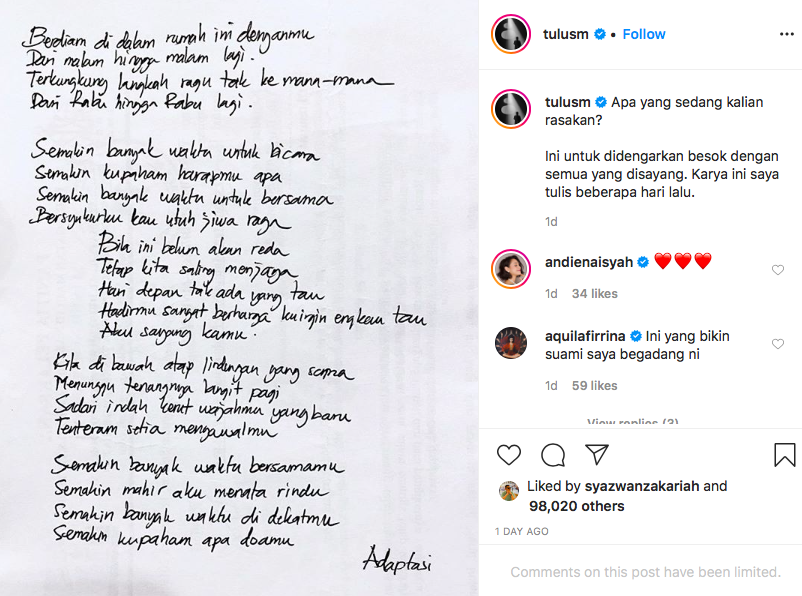 Berdiam di dalam rumah ini denganmu
Dari malam hingga malam lagi.
Terkungkung langkah ragu tak ke mana-mana
Dari Rabu hingga Rabu lagi.
Semakin banyak waktu untuk bicara
Semakin kupaham harapmu apa
Semakin banyak waktu untuk bersama
Bersyukurku kau utuh jiwa raga
Bila ini belum akan reda
Tetap kita saling menjaga
Hari depan tak ada yang tau
Hadirmu sangat berharga kuingin engkau tau
Aku sayang kamu.
Kita di bawah atap lindungan yang sama
Menunggu tenangnya langit pagi
Sadari indah kerut wajahmu yang baru
Tenteram setia mengawalmu
Semakin banyak waktu bersamamu
Semakin mahir aku menata rindu
Semakin banyak waktu di dekatmu
Semakin kupaham apa doamu
Adaptasi
tulusm • Follow
tulusm Apa yang sedang kalian
rasakan?
Ini untuk didengarkan besok dengan
semua yang disayang. Karya ini saya
tulis beberapa hari lalu.
1d
andienaisyah ❤️❤️❤️
1d 34 likes
aquilafirrina Ini yang bikin
suami saya begadang ni
1d 59 likes
View replies (3)
Liked by syazwanzakariah and
98,020 others
1 DAY AGO
Comments on this post have been limited.